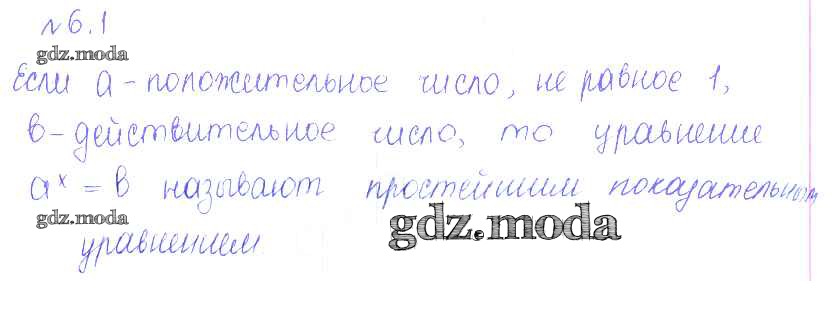 №6.1
gdz.moda
Если a - положительное число, не равное 1,
b - действительное число, то уравнение
aˣ = b называют простейшим показательным
gdz.moda
уравнением
gdz.moda